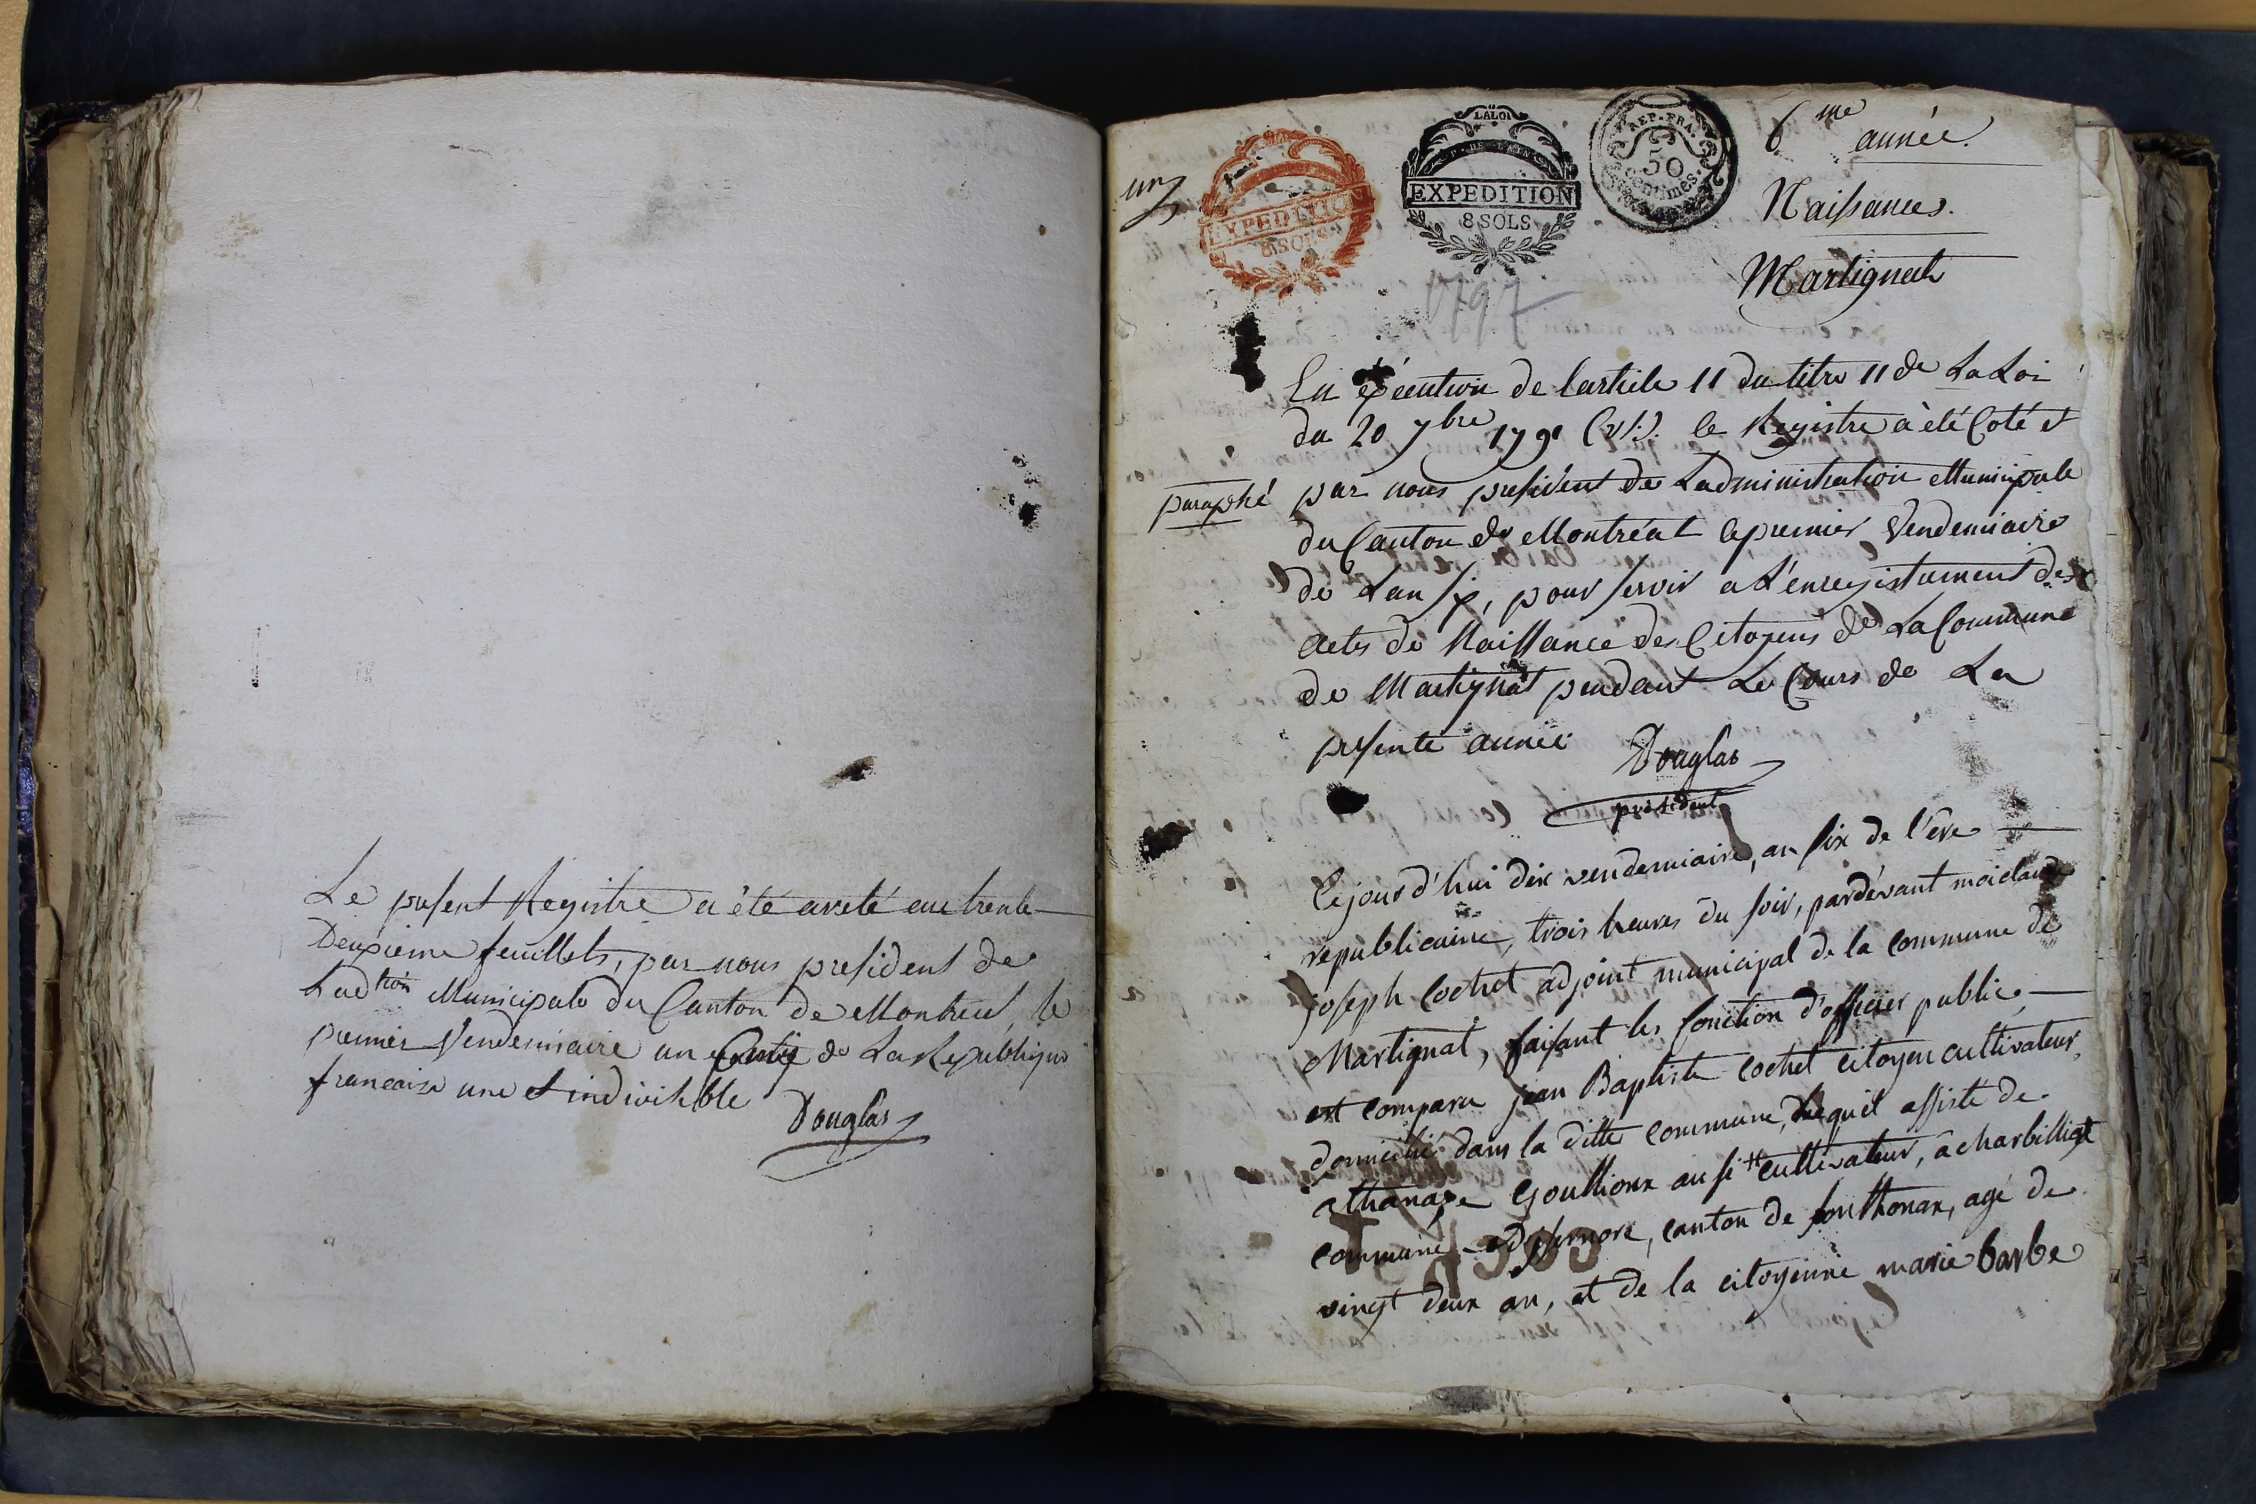 Le present Registre a été areté au trente
Deuxieme feuillets, par nous president de
Ladtion Municipale du Canton de Montreal, le
premier Vendemiaire an de La Republique
francaise une et indivisible
Douglas
un
LA LOI
EXPEDITION
8 SOLS
EXPEDITION
8 SOLS
REP. FRA.
50
centimes.
6me année.
Naissances.
Martignat
1797
En éxécution de l'article 11 du titre 11 de La Loi
du 20 7bre 179 (v.s.). le Registre à été Coté et
paraphé par nous president de Ladministration Municipale
du Canton de Montréal le premier Vendemiaire
de Lan six, pour servir a L'enregistrement des
actes de Naissance des Citoyens de La Commune
de Martignat pendant Le Cours de La
presente année
Douglas
président
Cejourd'hui dix vendemiaire, an six de l'ère
republicaine, trois heures du soir, pardevant moi claude
joseph cochet adjoint municipal de la commune de
Martignat, faisant les fonction d'officier public,
est comparu jean Baptiste cochet citoyen cultivateur,
domicilié dans la ditte commune, lequel assisté de
athanase Goullioux aussi cultivateur, à charbilliat
commune d'isernore, canton de sonthonax, agé de
vingt deux an, et de la citoyenne marie barbe